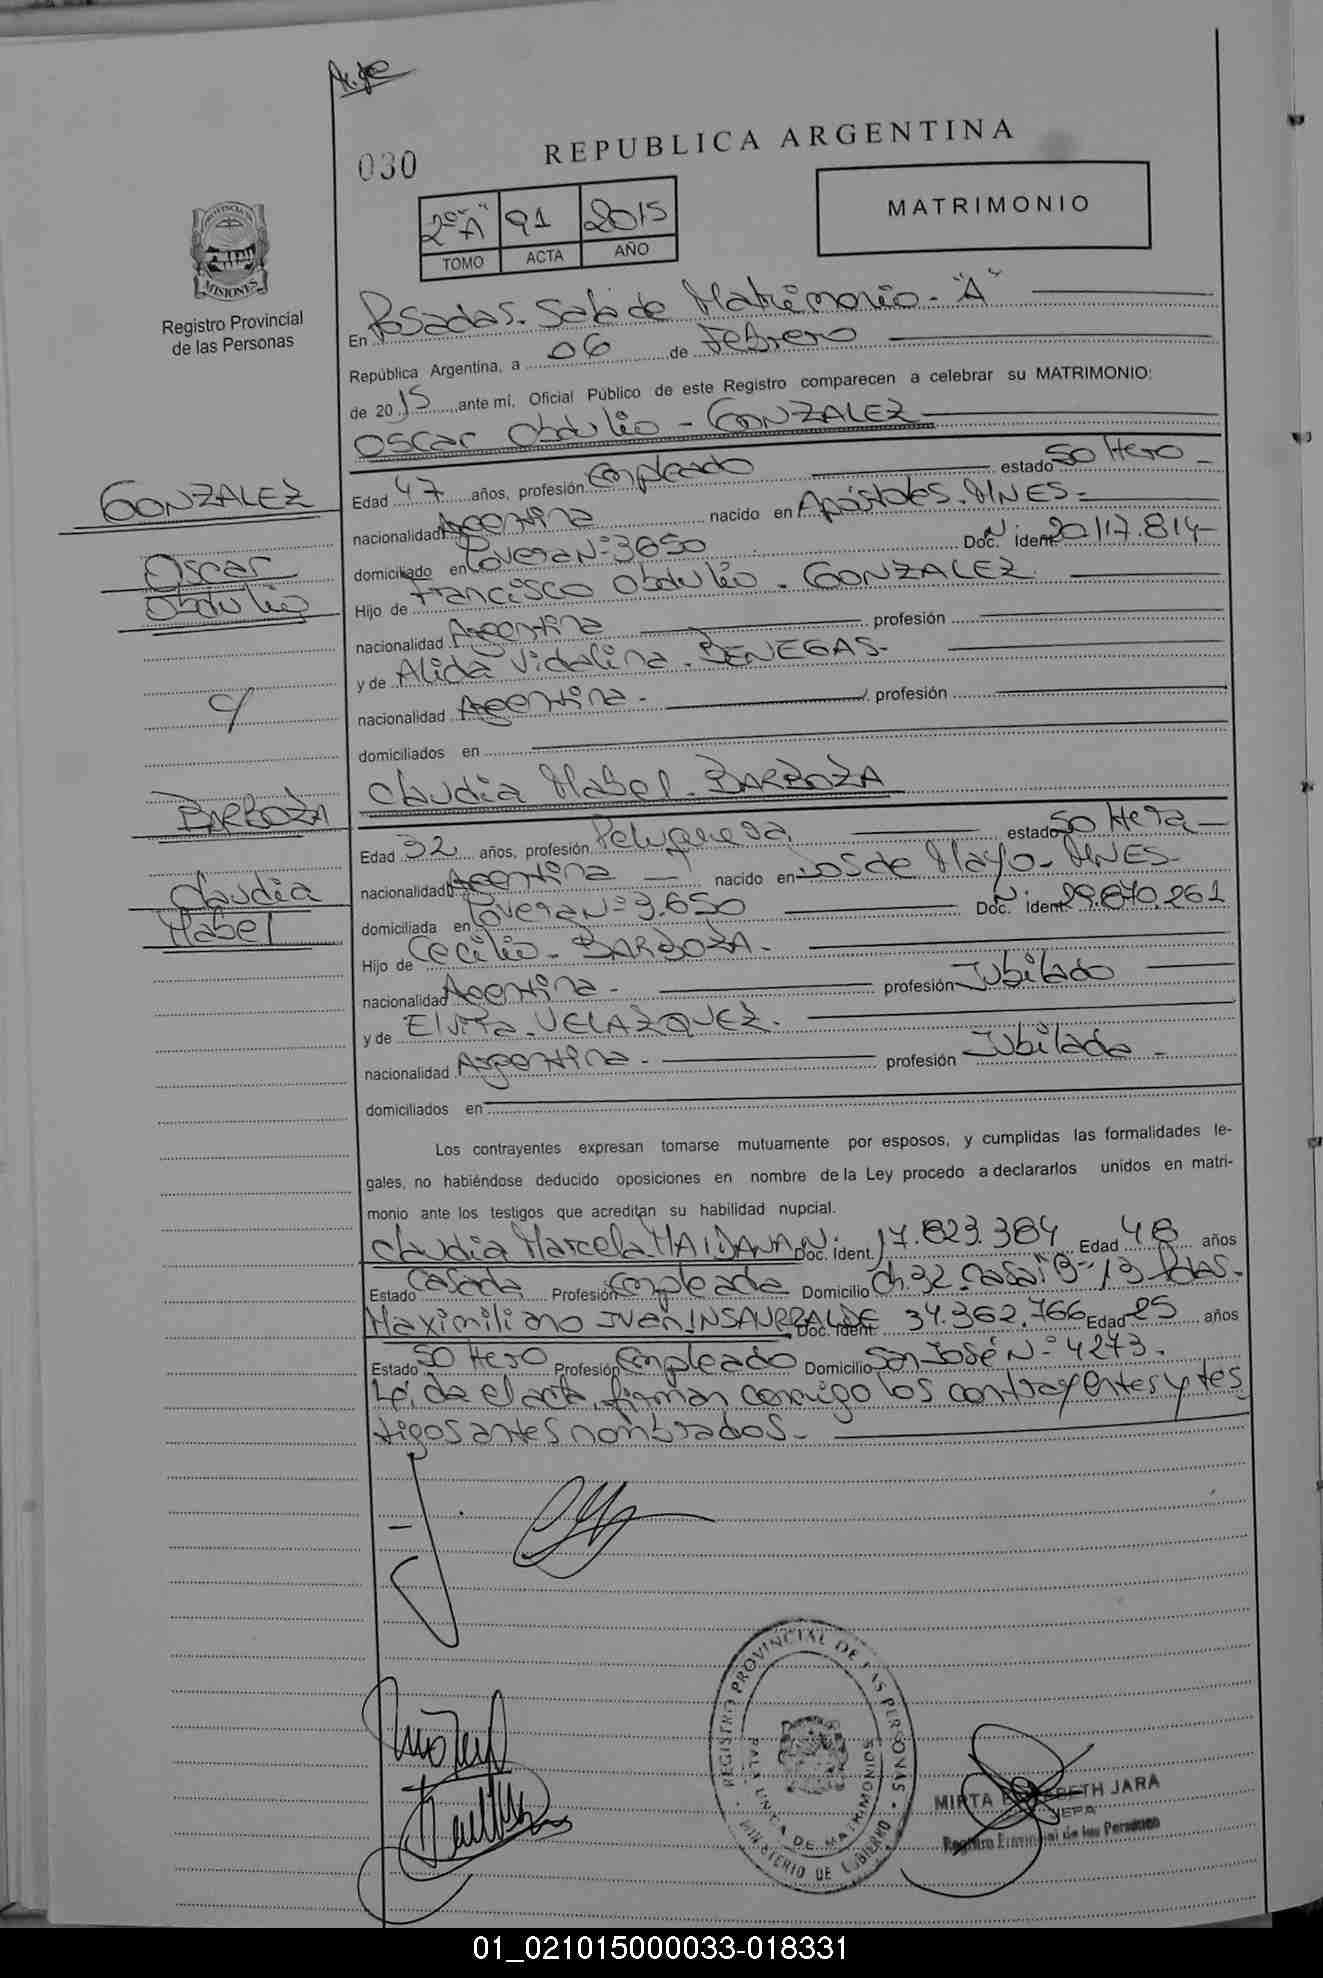 030
REPUBLICA ARGENTINA
MATRIMONIO
2º "A" 91 2015
TOMO ACTA AÑO
PROVINCIA DE
MISIONES
Registro Provincial
de las Personas
En Posadas. Sala de Matrimonio - "A"
República Argentina, a 06 de Febrero
de 2015 ante mí, Oficial Público de este Registro comparecen a celebrar su MATRIMONIO:
Oscar Obdulio - GONZALEZ
Edad 47 años, profesión Empleado estado Soltero -
nacionalidad Argentina nacido en Apóstoles. MNES -
domiciliado en Rovera Nº 3650 Doc. Ident. Nº 20.117.814 -
Hijo de Francisco Obdulio . GONZALEZ
nacionalidad Argentina profesión
y de Alida Vidalina . BENEGAS -
nacionalidad Argentina - profesión
domiciliados en
Claudia Mabel . BARBOZA
Edad 32 años, profesión Peluquera estado Soltera -
nacionalidad Argentina - nacido en Dos de Mayo - MNES -
domiciliada en Rovera Nº 3.650 Doc. Ident. Nº 29.670.261
Hijo de Cecilio - BARBOZA -
nacionalidad Argentina - profesión Jubilado
y de Elvira . VELAZQUEZ .
nacionalidad Argentina - profesión Jubilada -
domiciliados en
GONZALEZ
Oscar
Obdulio
c/
BARBOZA
Claudia
Mabel
Los contrayentes expresan tomarse mutuamente por esposos, y cumplidas las formalidades le-
gales, no habiéndose deducido oposiciones en nombre de la Ley procedo a declararlos unidos en matri-
monio ante los testigos que acreditan su habilidad nupcial.
Claudia Marcela MAIDANA Doc. Ident. Nº 17.823.384 Edad 48 años
Estado Casada Profesión Empleada Domicilio Ch. 32 Casa 13 Pdas -
Maximiliano Ivan INSAURRALDE Doc. Ident. 34.362.766 Edad 25 años
Estado Soltero Profesión Empleado Domicilio San José Nº 4273 .
Leída el acta, firman conmigo los contrayentes y tes
tigos antes nombrados -
REGISTRO PROVINCIAL DE LAS PERSONAS
SALA UNICA DE MATRIMONIOS
MINISTERIO DE GOBIERNO
MIRTA ELIZABETH JARA
JEFA
Registro Provincial de las Personas
01_021015000033-018331